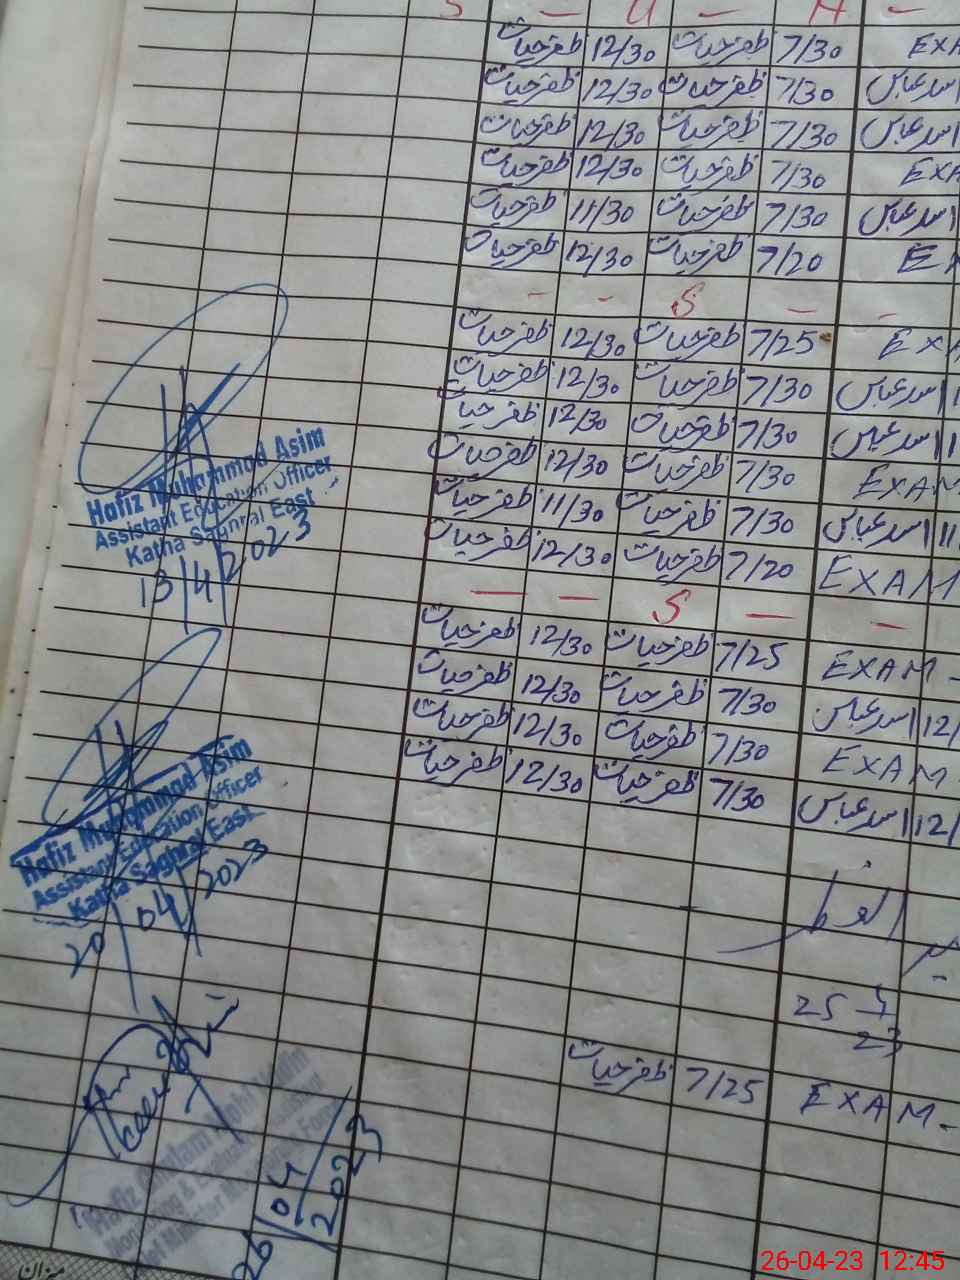 S — U — N —
ظفرحیات 12/30 ظفرحیات 7/30 EXA
ظفرحیات 12/30 ظفرحیات 7/30 اسدعباس
ظفرحیات 12/30 ظفرحیات 7/30 اسدعباس
ظفرحیات 12/30 ظفرحیات 7/30 EXA
ظفرحیات 11/30 ظفرحیات 7/30 اسدعباس
ظفرحیات 12/30 ظفرحیات 7/20 EX
- - S — -
ظفرحیات 12/30 ظفرحیات 7/25 EXA
ظفرحیات 12/30 ظفرحیات 7/30 اسدعباس 1
ظفرحیات 12/30 ظفرحیات 7/30 اسدعباس 11
ظفرحیات 12/30 ظفرحیات 7/30 EXAM
ظفرحیات 11/30 ظفرحیات 7/30 اسدعباس 11
ظفرحیات 12/30 ظفرحیات 7/20 EXAM
— — S — —
ظفرحیات 12/30 ظفرحیات 7/25 EXAM -
ظفرحیات 12/30 ظفرحیات 7/30 اسدعباس 12/
ظفرحیات 12/30 ظفرحیات 7/30 EXAM
ظفرحیات 12/30 ظفرحیات 7/30 اسدعباس 12/
25
23
ظفرحیات 7/25 EXAM -
Hafiz Muhammad Asim
Assistant Education Officer
Katha Saghral East
13/4/2023
Hafiz Muhammad Asim
Assistant Education Officer
Katha Saghral East
20/04/2023
Hafiz Ghulam Mohi
Monitoring & Evaluation Assistant
Chief Minister Monitoring Force
26/04/2023
میزان
26-04-23 12:45